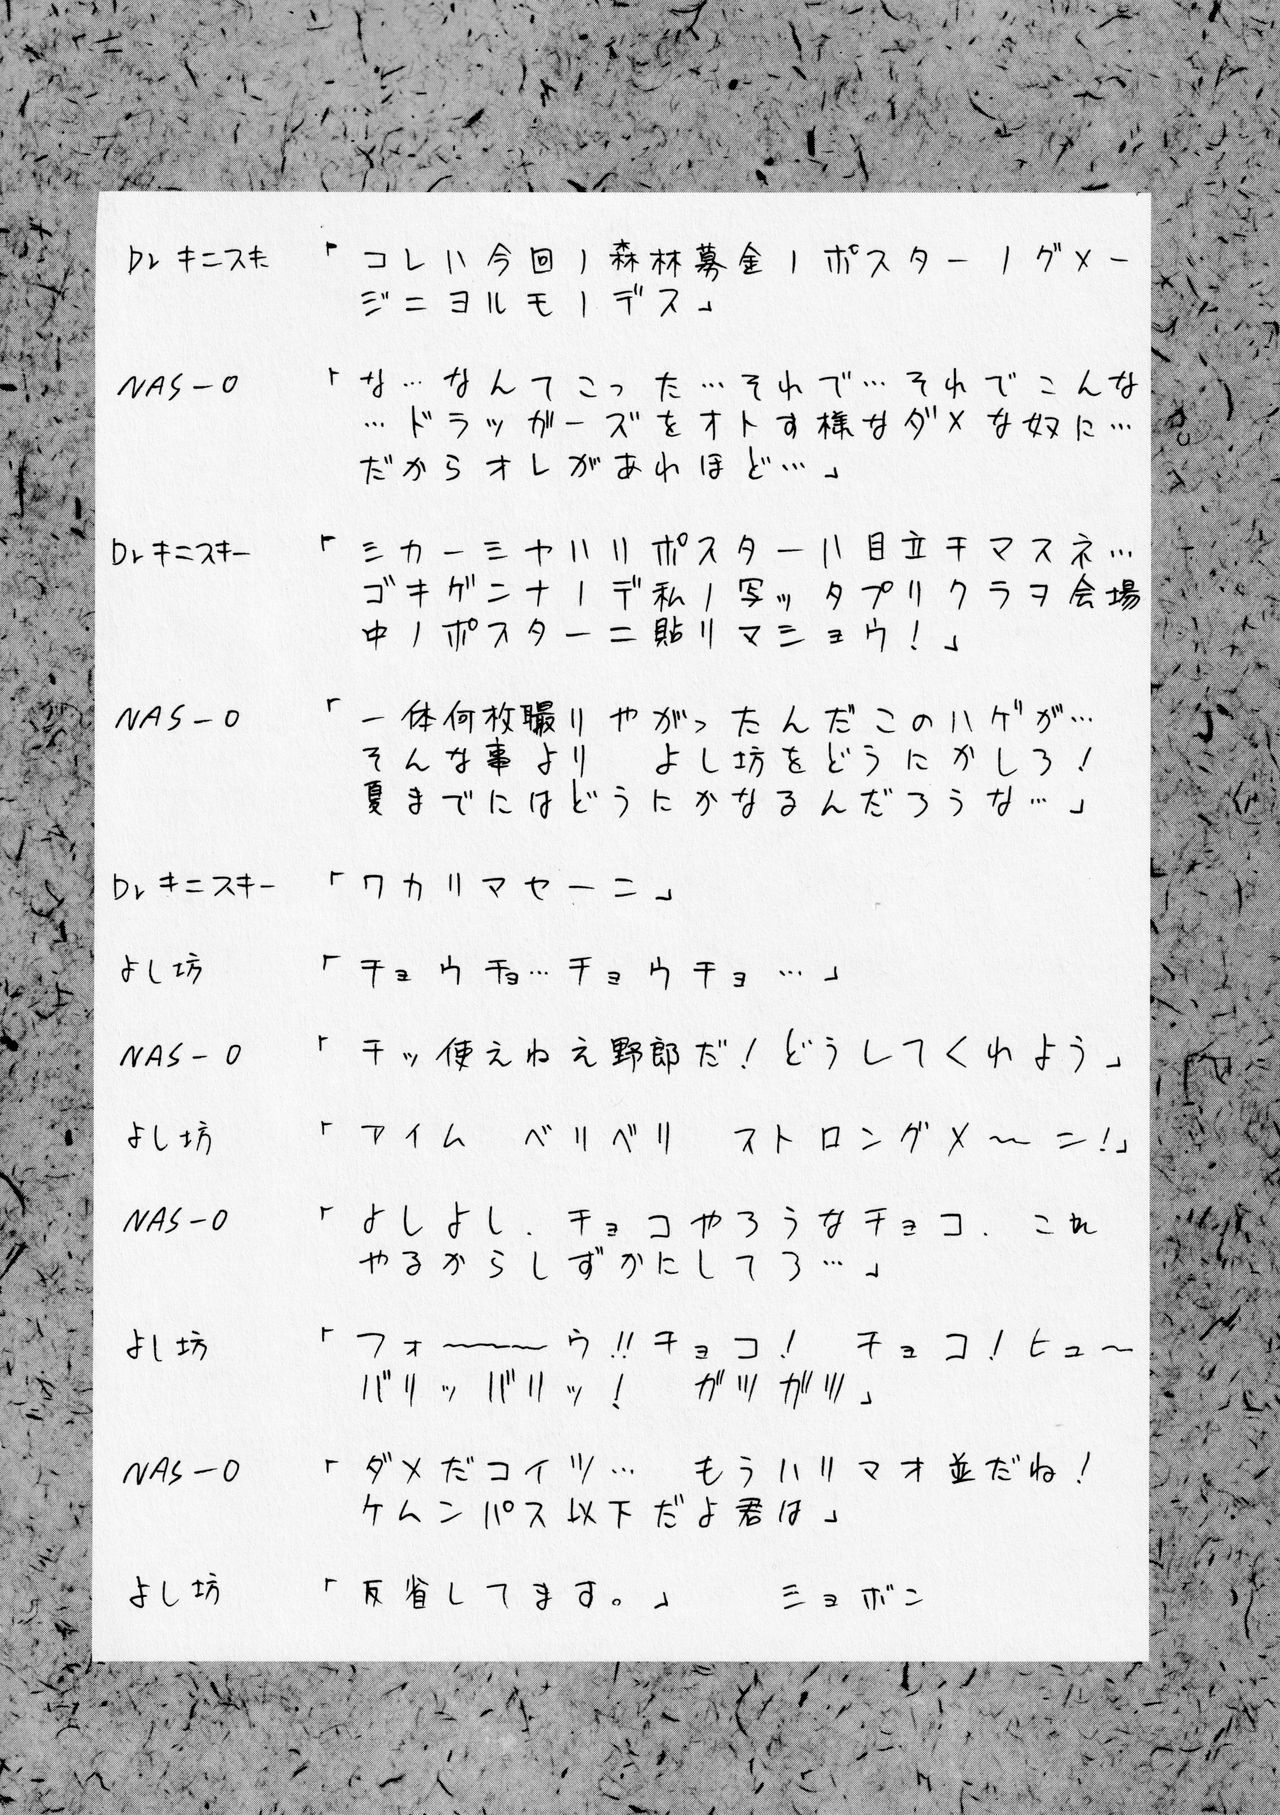 Dr キニスキ 「コレハ今回ノ森林募金ノポスターノダメー
ジニヨルモノデス」
NAS-O 「な…なんてこった…それで…それでこんな
…ドラッガーズをオトす様なダメな奴に…
だからオレがあれほど…」
Dr キニスキー 「シカーシヤハリポスターハ目立チマスネ…
ゴキゲンナノデ私ノ写ッタプリクラヲ会場
中ノポスターニ貼リマショウ!」
NAS-O 「一体何枚撮りやがったんだこのハゲが…
そんな事より よし坊をどうにかしろ!
夏までにはどうにかなるんだろうな…」
Dr キニスキー 「ワカリマセーン」
よし坊 「チョウチョ…チョウチョ…」
NAS-O 「チッ使えねえ野郎だ!どうしてくれよう」
よし坊 「アイム ベリベリ ストロングメ〜ン!」
NAS-O 「よしよし、チョコやろうなチョコ、これ
やるからしずかにしてろ…」
よし坊 「フォ〜〜〜〜ウ!!チョコ! チョコ!ヒュ〜
バリッバリッ! ガツガツ」
NAS-O 「ダメだコイツ… もうハリマオ並だね!
ケムンパス以下だよ君は」
よし坊 「反省してます。」 ショボン